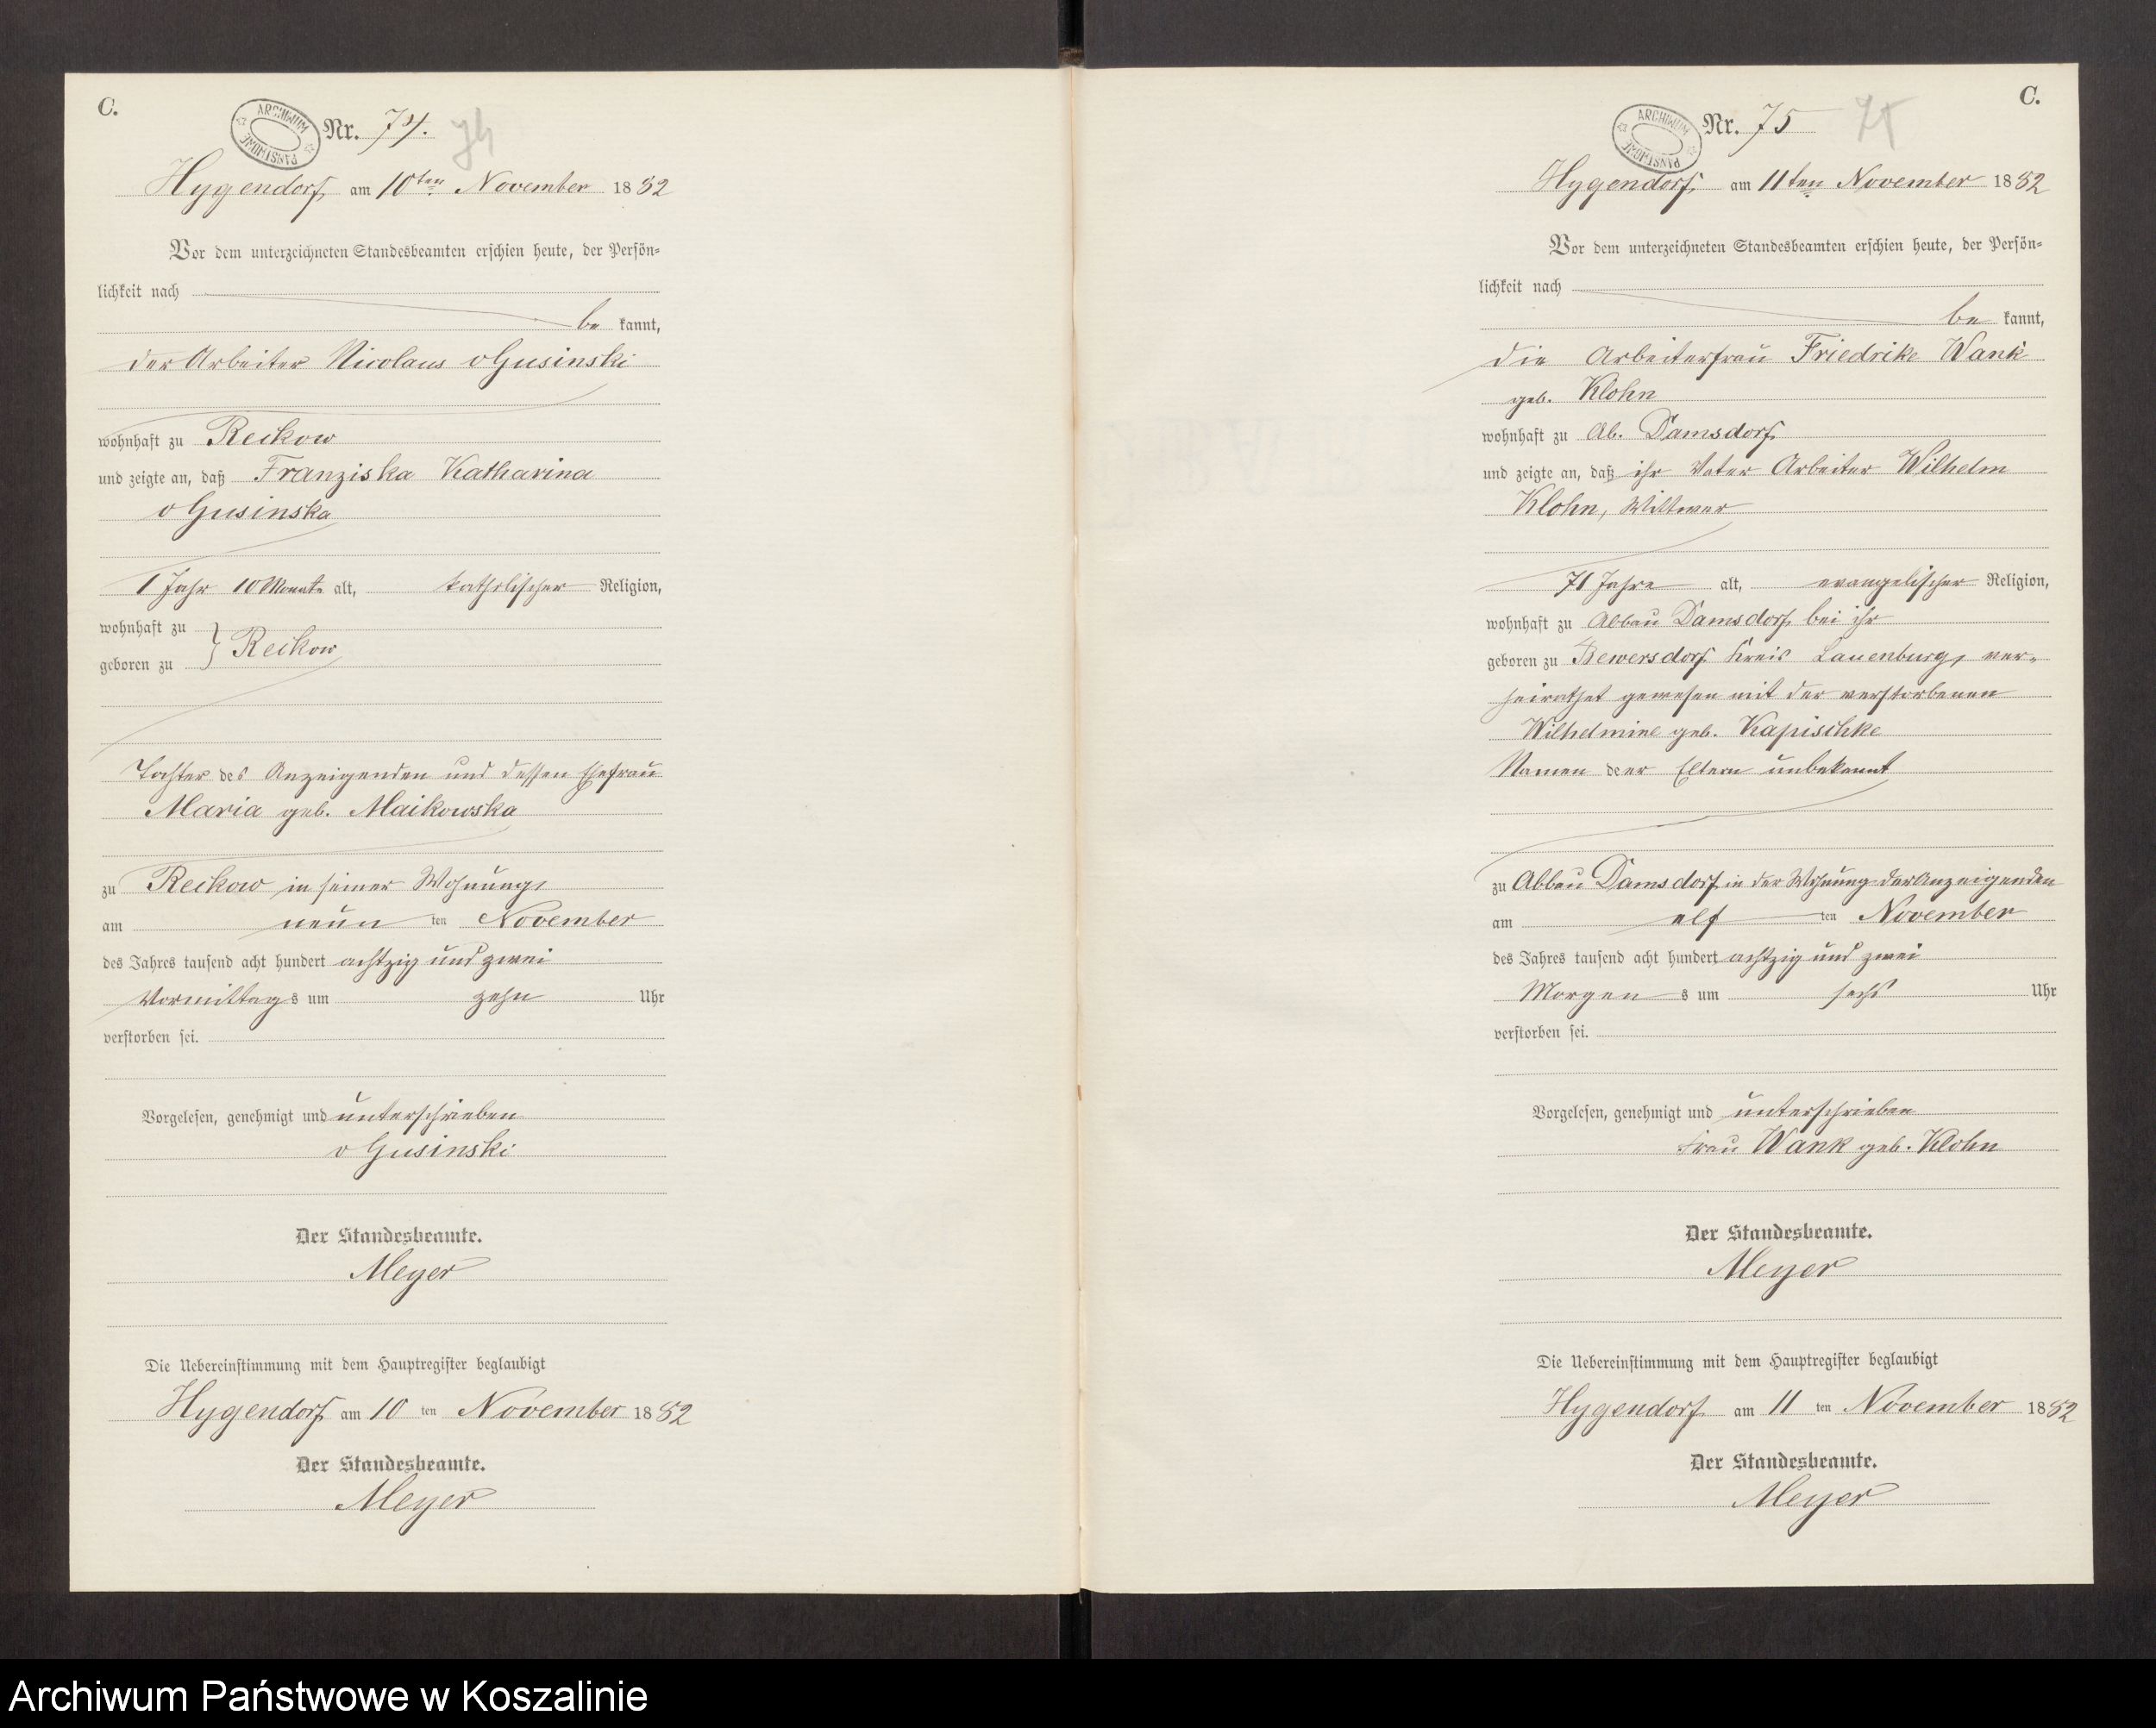 C.
ARCHIWUM PAŃSTWOWE
Nr. 74. 74
Hygendorf am 10ten November 1882
Vor dem unterzeichneten Standesbeamten erschien heute, der Persön-
lichkeit nach
be kannt,
der Arbeiter Nicolaus v Gusinski
wohnhaft zu Reckow
und zeigte an, daß Franziska Katharina
v Gusinska
1 Jahr 10 Monate alt, katholischer Religion,
wohnhaft zu
geboren zu } Reckow
Tochter des Anzeigenden und dessen Ehefrau
Maria geb. Maikowska
zu Reckow in seiner Wohnung,
am neun ten November
des Jahres tausend acht hundert achtzig und zwei
Vormittags um zehn Uhr
verstorben sei.
Vorgelesen, genehmigt und unterschrieben
v Gusinski
Der Standesbeamte.
Meyer
Die Uebereinstimmung mit dem Hauptregister beglaubigt
Hygendorf am 10 ten November 1882
Der Standesbeamte.
Meyer
C.
ARCHIWUM PAŃSTWOWE
Nr. 75 75
Hygendorf, am 11ten November 1882
Vor dem unterzeichneten Standesbeamten erschien heute, der Persön-
lichkeit nach
be kannt,
die Arbeiterfrau Friedrike Wank
geb. Klohn
wohnhaft zu Ab. Damsdorf
und zeigte an, daß ihr Vater Arbeiter Wilhelm
Klohn, Wittwer
71 Jahre alt, evangelischer Religion,
wohnhaft zu Abbau Damsdorf, bei ihr
geboren zu Bewersdorf Kreis Lauenburg, ver-
heirathet gewesen mit der verstorbenen
Wilhelmine geb. Kapischke
Namen deer Eltern unbekannt
zu Abbau Damsdorf in der Wohnung der Anzeigenden
am elf ten November
des Jahres tausend acht hundert achtzig und zwei
Morgens um sechs Uhr
verstorben sei.
Vorgelesen, genehmigt und unterschrieben
Frau Wank geb. Klohn
Der Standesbeamte.
Meyer
Die Uebereinstimmung mit dem Hauptregister beglaubigt
Hygendorf am 11 ten November 1882
Der Standesbeamte.
Meyer
Archiwum Państwowe w Koszalinie